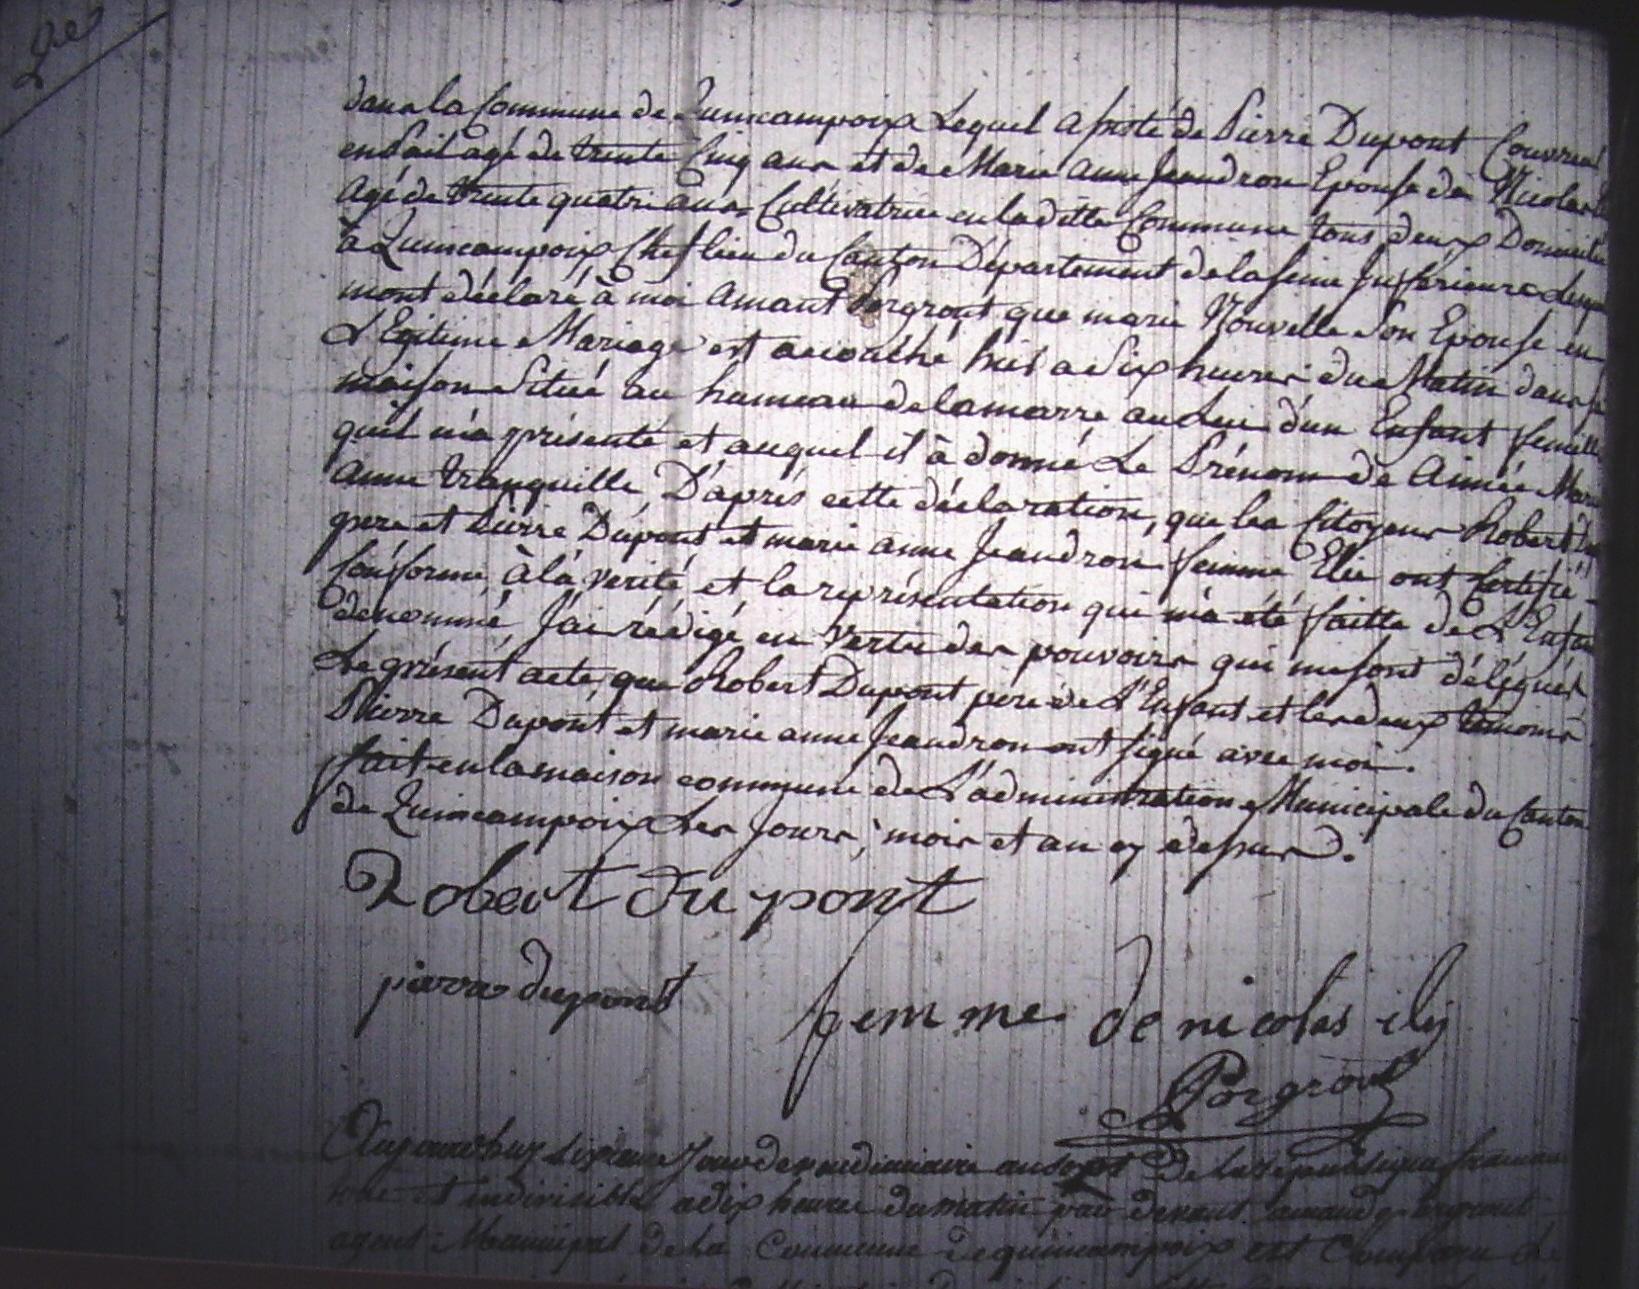 dans la Commune de Quincampoix Lequel assisté de Pierre Dupont Couvreur
en Pail agé de trente Cinq ans et de Marie anne Jeandron Epouse de Nicolas
Agé de trente quatre ans Cultivatrice en laditte Commune tous deux Domicilié
à Quincampoix Chef lieu du Canton Département de la seine Inferieure
mont déclaré à moi Amant Gorgront que marie Nouvelle Son Epouse en
LEgitime Mariage est accouché hier a Six heures du Matin dans sa
maison Située au hameau de lamarre d'un Enfant femelle
quil m'a présenté et auquel il à donné Le Prénom de Aimée Marie
anne tranquille, D'après cette déclaration, que les Citoyens Robert
pere et Pierre Dupont et marie anne Jeandron femme Elie ont Certifié
Conforme à la verité et la représentation qui m'a été faitte de L'Enfant
denommé J'ai rédigé en Vertu des pouvoirs qui me sont délégués
Le présent acte, que Robert Dupont pere de L'Enfant et les deux temoins
Pierre Dupont et marie anne Jeandron ont signé avec moi.
fait en la maison commune de L'administration Municipale du Canton
de Quincampoix Les Jours, mois et an cy dessus.
Robert du pont
pierre dupont
femme de nicolas ely
Gorgront
Aujourdhuy sixieme Jour de vendimiaire an sept De la République francaise
une et indivisible a dix heures du matin par devant amand gorgront
agent Municipal de la Commune de quincampoix est Comparu Le